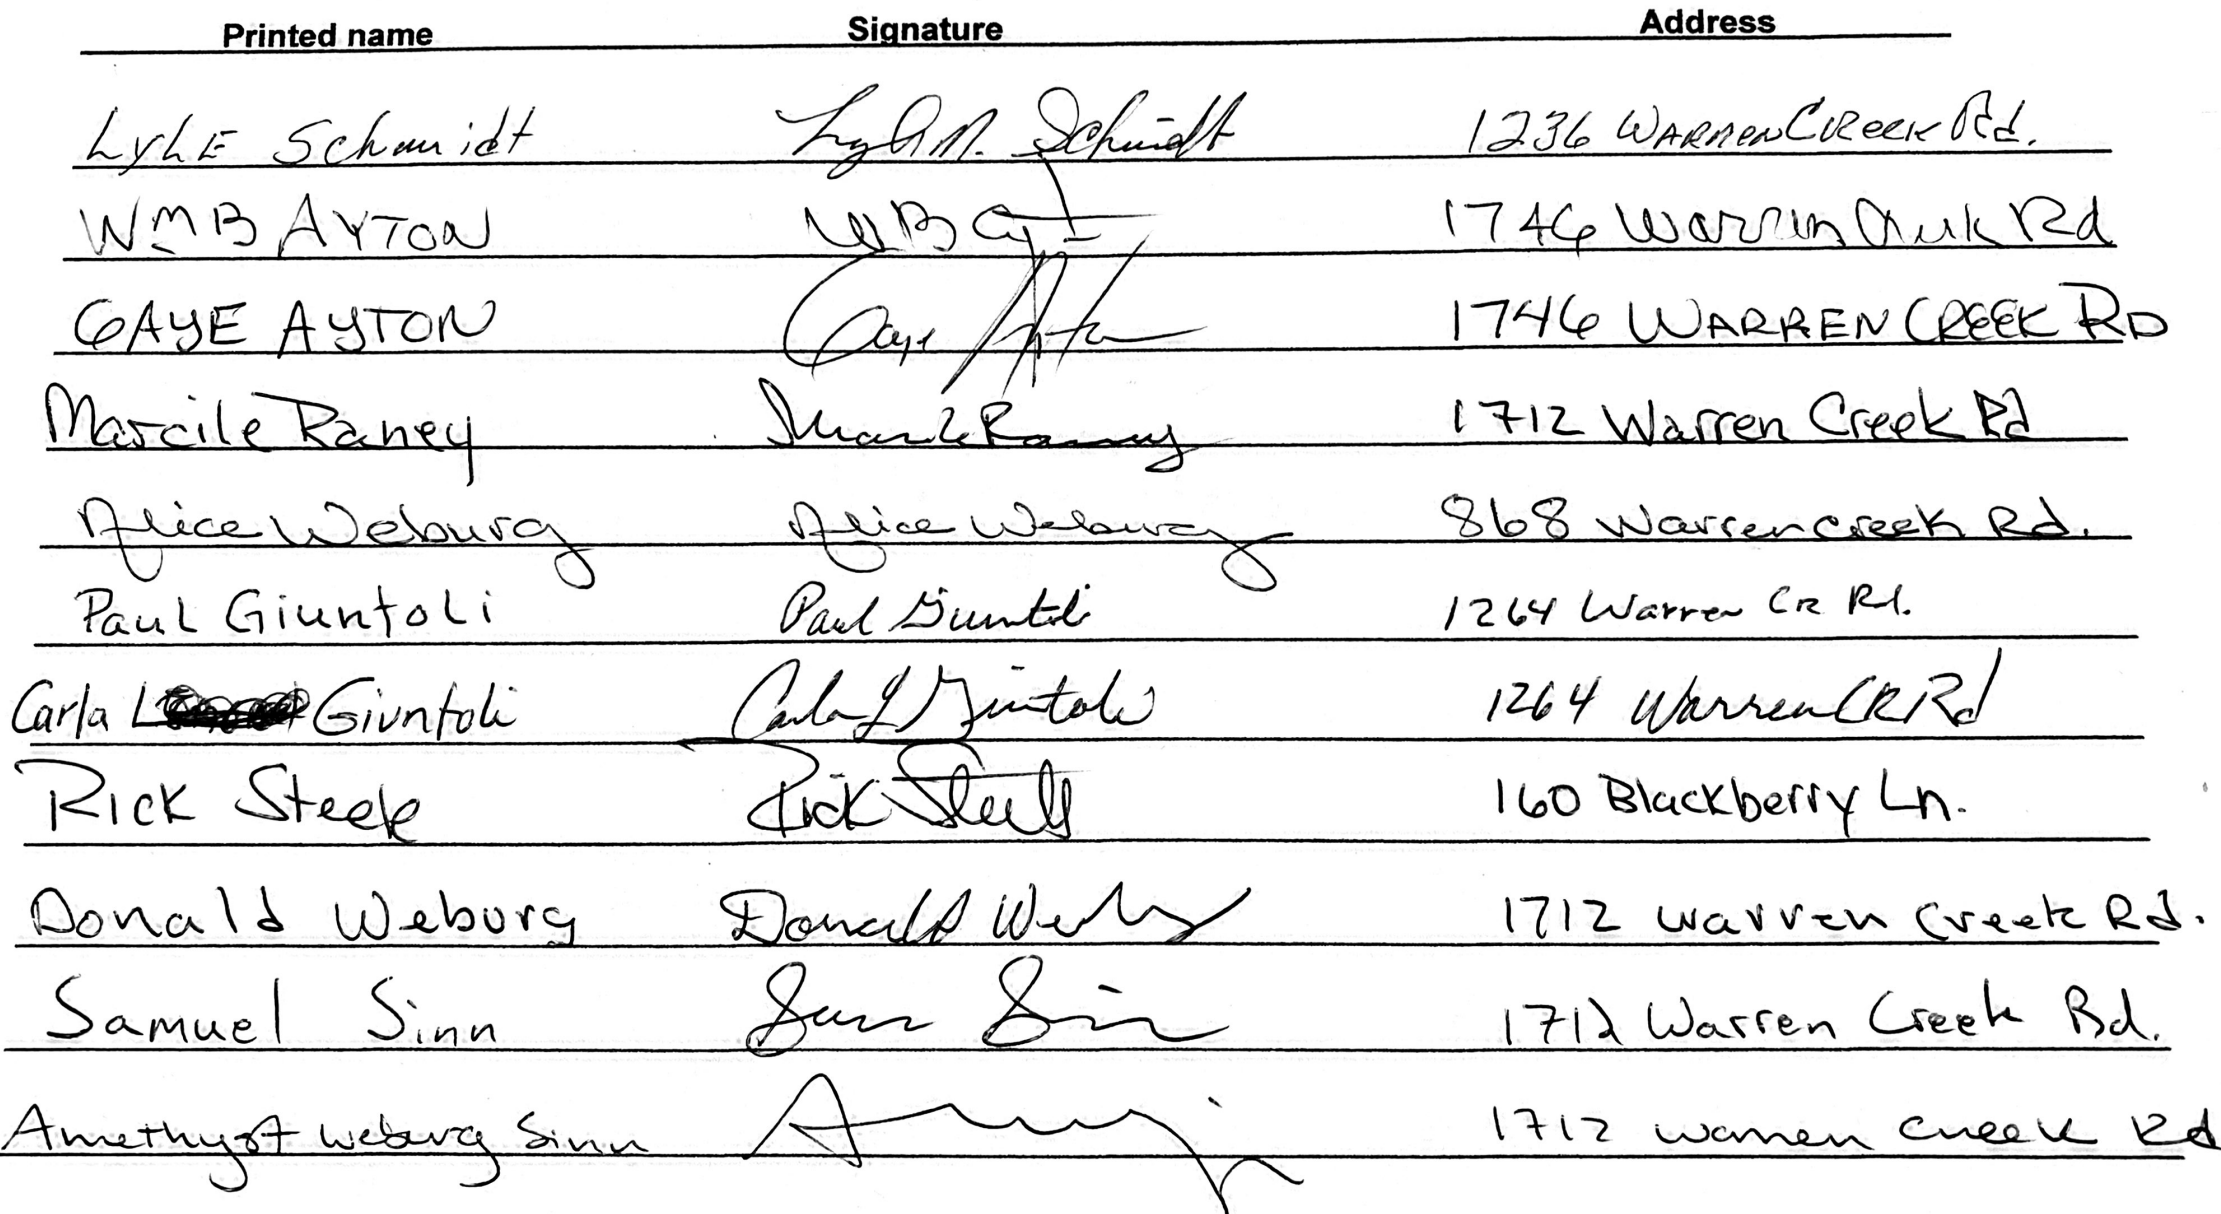 Printed name Signature Address
LYLE Schmidt Lyle M. Schmidt 1236 WARREN CREEK Rd.
WMB AYTON WB Ayton 1746 Warren Creek Rd
GAYE AYTON Gaye Ayton 1746 WARREN CREEK RD
Marcile Raney Marcile Raney 1712 Warren Creek Rd
Alice Weburg Alice Weburg 868 Warren creek Rd.
Paul Giuntoli Paul Giuntoli 1264 Warren CR Rd.
Carla L Giuntoli Carla L Giuntoli 1264 Warren CR Rd
Rick Steele Rick Steele 160 Blackberry Ln.
Donald Weburg Donald Weburg 1712 Warren Creek Rd.
Samuel Sinn Sam Sinn 1712 Warren Creek Rd.
Amethyst Weburg Sinn 1712 Warren Creek Rd